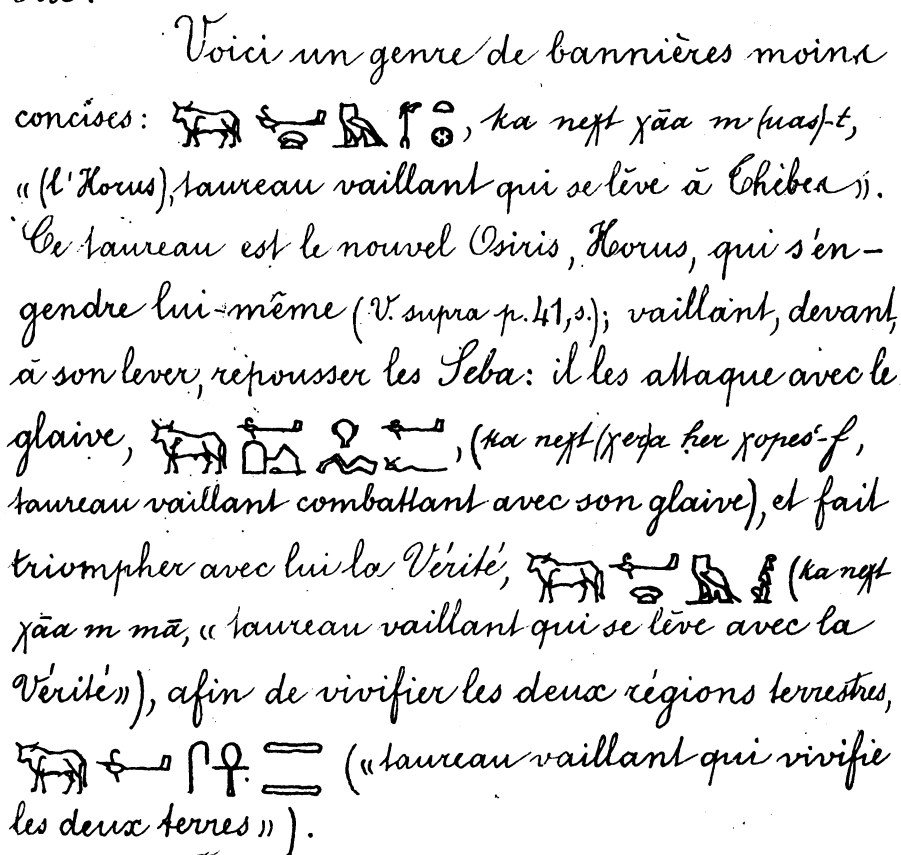 Voici un genre de bannières moins
concises: 𓃒𓂡𓈍𓅓𓌀𓏏𓊖, ka neχt χāa m (uas)-t,
« (l'Horus), taureau vaillant qui se lève à Thèbes ».
Ce taureau est le nouvel Osiris, Horus, qui s'en-
gendre lui-même (V. supra p. 41, s.); vaillant, devant,
à son lever, repousser les Seba: il les attaque avec le
glaive, (ka neχt χer her χopeś-f,
taureau vaillant combattant avec son glaive), et fait
triompher avec lui la Vérité, 𓃒𓂡𓈍𓅓𓁦 (ka neχt
χāa m mā, « taureau vaillant qui se lève avec la
Vérité»), afin de vivifier les deux régions terrestres,
𓃒𓂡𓋴𓋹𓇿𓇿 (« taureau vaillant qui vivifie
les deux terres » ).